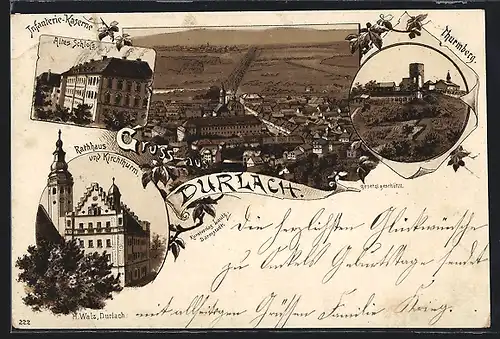 Infanterie-Kaserne
Altes Schloss.
Thurmberg.
Rathhaus
und Kirchthurm.
Gruss aus
DURLACH.
Gesetzl. geschützt.
Kunstverlag
Die herzlichsten Glückwünsche
zu Onkels Geburtstage sendet
mit allseitigen Grüssen Familie Krieg.
222
H. Walz, Durlach.